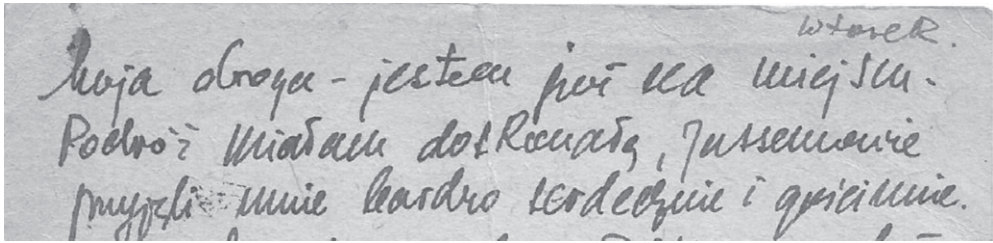 wtorek.
Moja droga – jestem już na miejscu.
Podróż miałam doskonałą, Jussemowie
przyjęli mnie bardzo serdecznie i gościnnie.